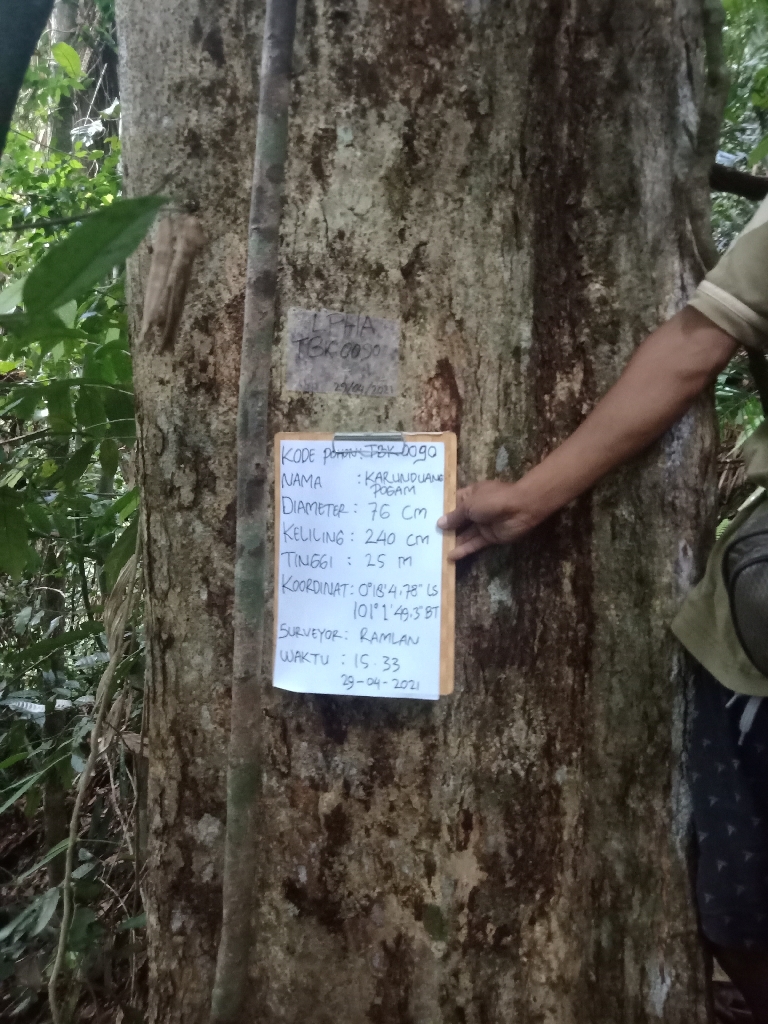 LPHA
TBK0090
29/04/2021
KODE POHON: TBK0090
NAMA : KARUNDUANG
POGAM
DIAMETER : 76 Cm
KELILING : 240 cm
TINGGI : 25 m
KOORDINAT : 0°18'4,78" LS
101°1'49,3" BT
SURVEYOR : RAMLAN
WAKTU : 15.33
29-04-2021